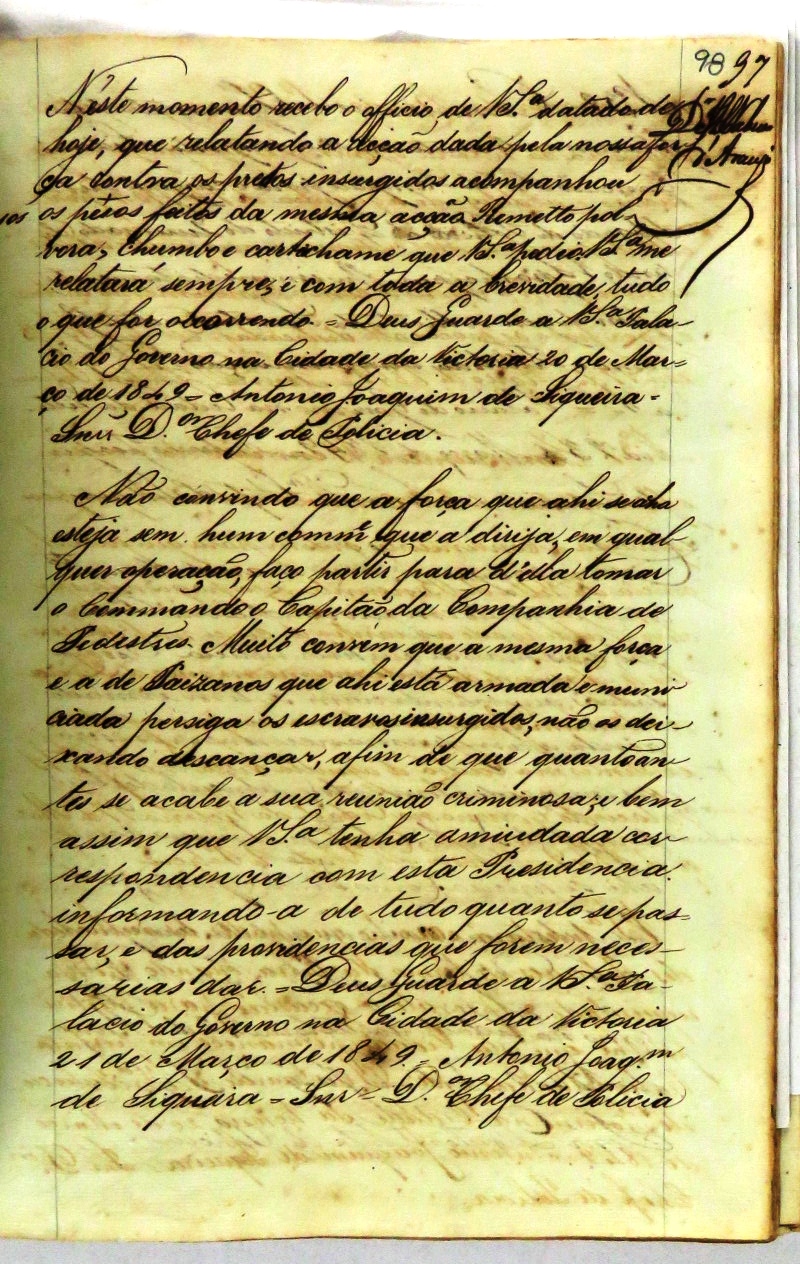 98 97
Néste momento recebo o officio de V.S.ª datado de
hoje, que relatando a acção dada pela nossa for
d'Araujo
ça contra os pretos insurgidos acompanhou
os prêsos feitos da mesma acção. Remetto pol-
vora, chumbo e cartuchame que V.S.ª pedio. V.S.ª me
relatará sempre, e com toda a brevidade, tudo
o que for occorrendo. = Deus Guarde a V.S.ª Pala-
cio do Governo na Cidade da Victoria 20 de Mar=
ço de 1849 = Antonio Joaquim de Siqueira =
Snr. D.or Chefe de Policia.
Não convindo que a força que ahi se acha
esteja sem hum comm.e que a dirija, em qual-
quer operação, faço partir para d'ella tomar
o Commando o Capitão da Companhia de
Pedestres. Muito convém que a mesma força
e a de Paizanos que ahi está armada e muni
ciada persiga os escravos insurgidos, não os dei-
xando descançar, afim de que quanto an
tes se acabe a sua reunião criminosa, e bem
assim que V.S.ª tenha amiudada cor
respondencia com esta Presidencia.
informando-a de tudo quanto se pas=
sar, e das providencias que forem neces-
sarias dar. = Deus Guarde a V.S.ª Pa-
lacio do Governo na Cidade da Victoria
21 de Março de 1849. = Antonio Joaq.m
de Siqueira = Snr. = D.or Chefe de Policia